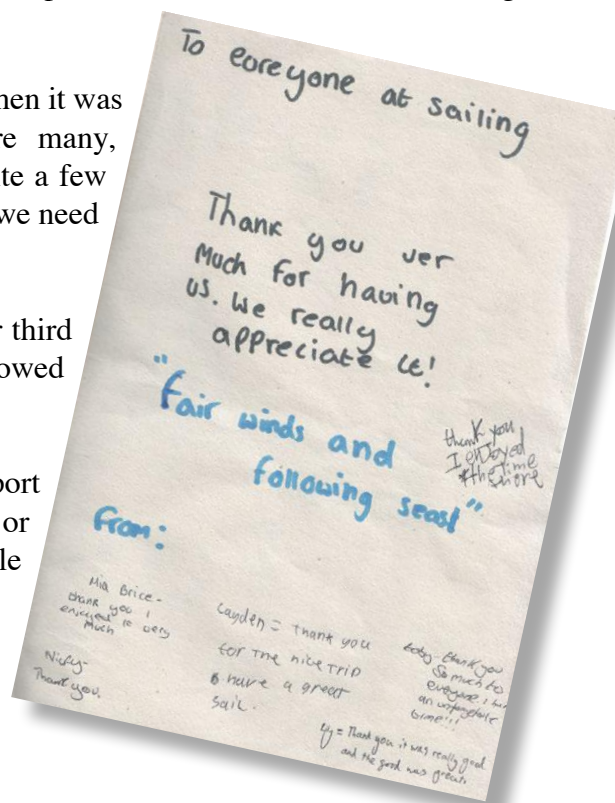 hen it was
re many,
ite a few
we need
r third
owed
port
or
le
To eoreyone at sailing
Thank you ver
Much for having
us. We really
appreciate it!
"Fair winds and
following seas!"
thank you
I enjoyed
the time
From:
Mia Brice -
thank you I
enjoyed it very
much
Nicky-
Thank you.
Cayden = Thank you
for the nice trip
& have a great
sail.
Toby - thank you
so much to
everyone I had
an unforgetable
time!!!
= Thank you it was really good
and the good was great.